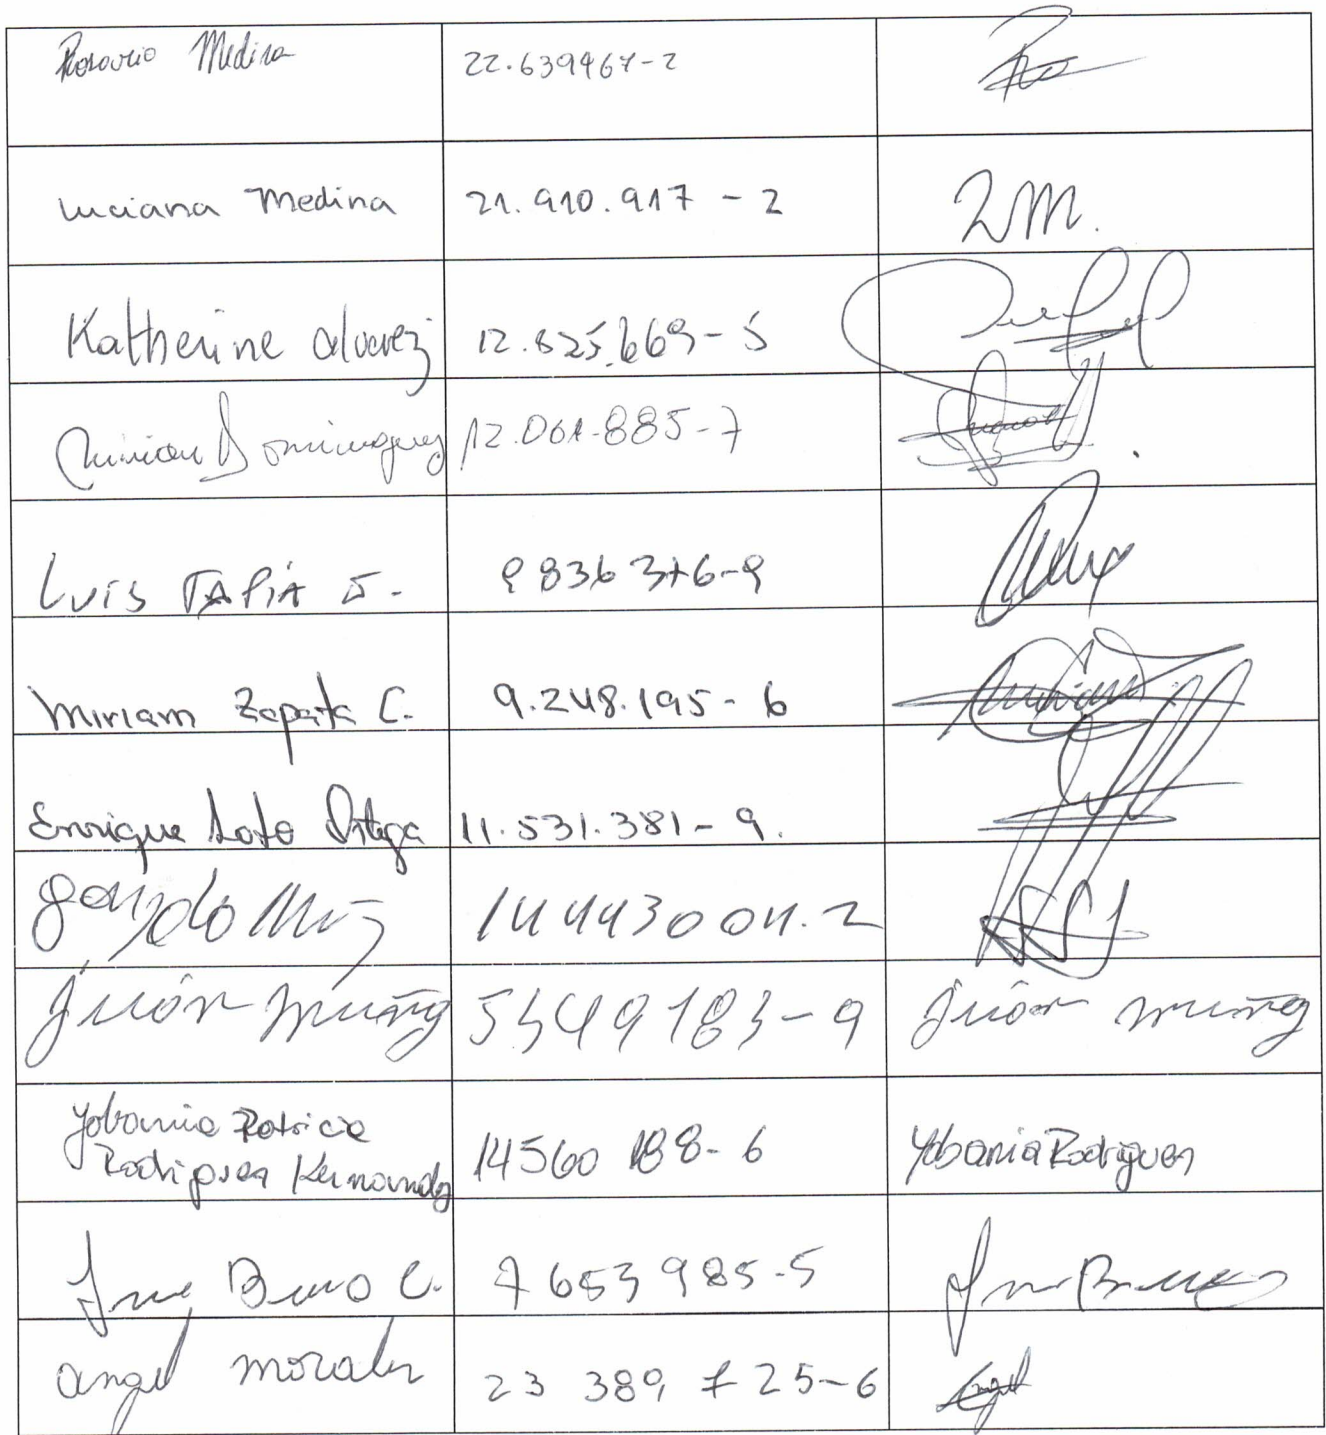 Rosario Medina 22.639467-2
Luciana Medina 21.910.917-2 LM.
Katherine alvarez 12.825.669-5
Miriam Dominguez 12.061.885-7
LUIS TAPIA J. 9836376-9
Miriam Zapata C. 9.248.195-6
Enrique Soto Ortega 11.531.381-9.
gonzalo Muñoz 14443004.2
Juan muñoz 5349183-9 Juan muñoz
Yobania Patricia
Rodriguez Hernandez 14560188-6 Yobania Rodriguez
Jose Bravo C. 7653985-5
angel morales 23 389 725-6 Angel